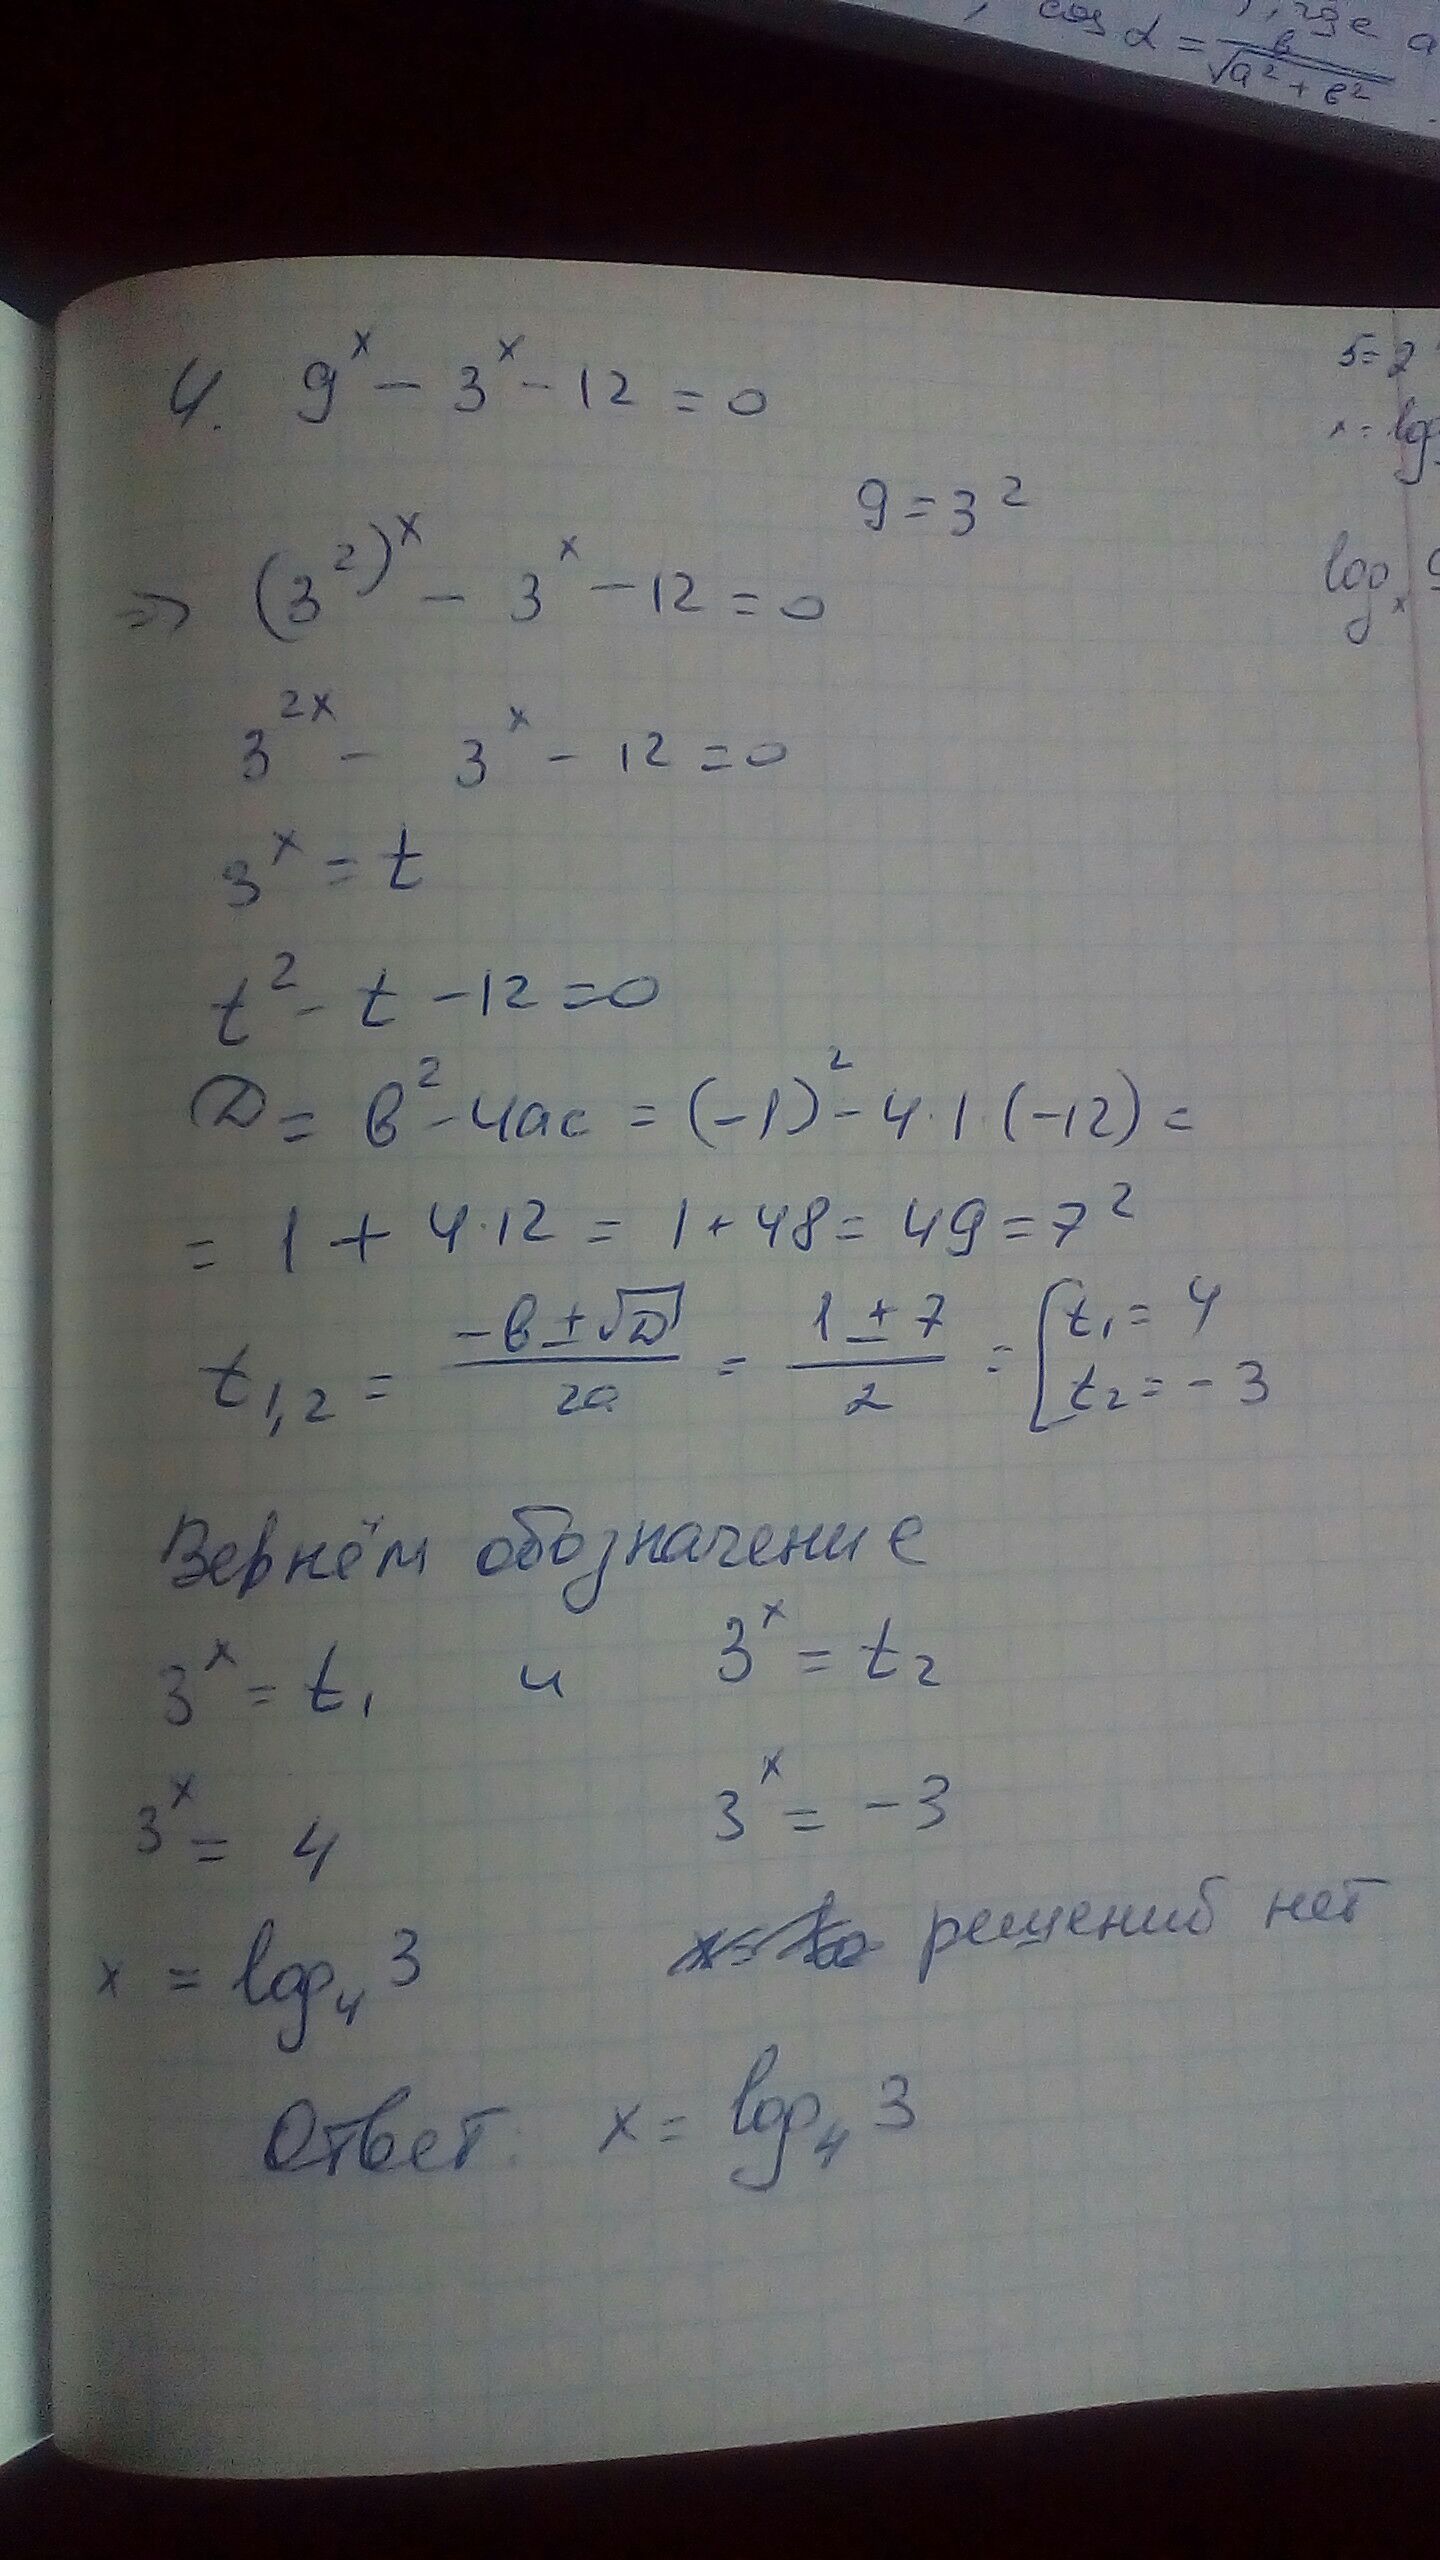 cos α = b/√(a² + b²), где a
5 = 2
4. 9^x − 3^x − 12 = 0
x = log
9 = 3²
⇒ (3²)^x − 3^x − 12 = 0
log_x 9
3^2x − 3^x − 12 = 0
3^x = t
t² − t − 12 = 0
D = b² − 4ac = (−1)² − 4·1·(−12) =
= 1 + 4·12 = 1 + 48 = 49 = 7²
t1,2 = (−b ± √D)/2a = (1 ± 7)/2 = [t1 = 4
t2 = −3
Вернём обозначение
3^x = t1 и 3^x = t2
3^x = 4 3^x = −3
x = log₄3 решений нет
Ответ: x = log₄3